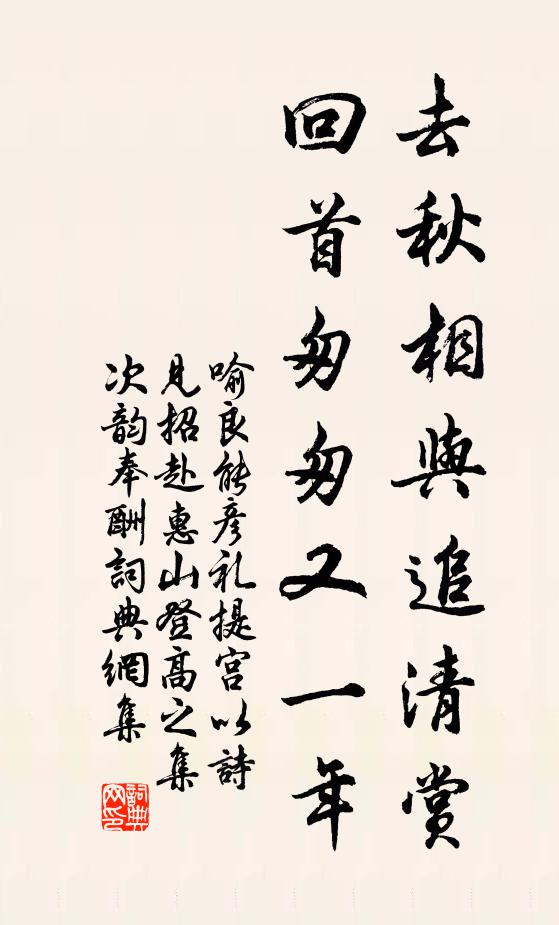 去秋相與追清賞
回首匆匆又一年
喻良能彥礼提宮以詩
見招赴惠山登高之集
次韵奉酬詞典網集
詞典
网印